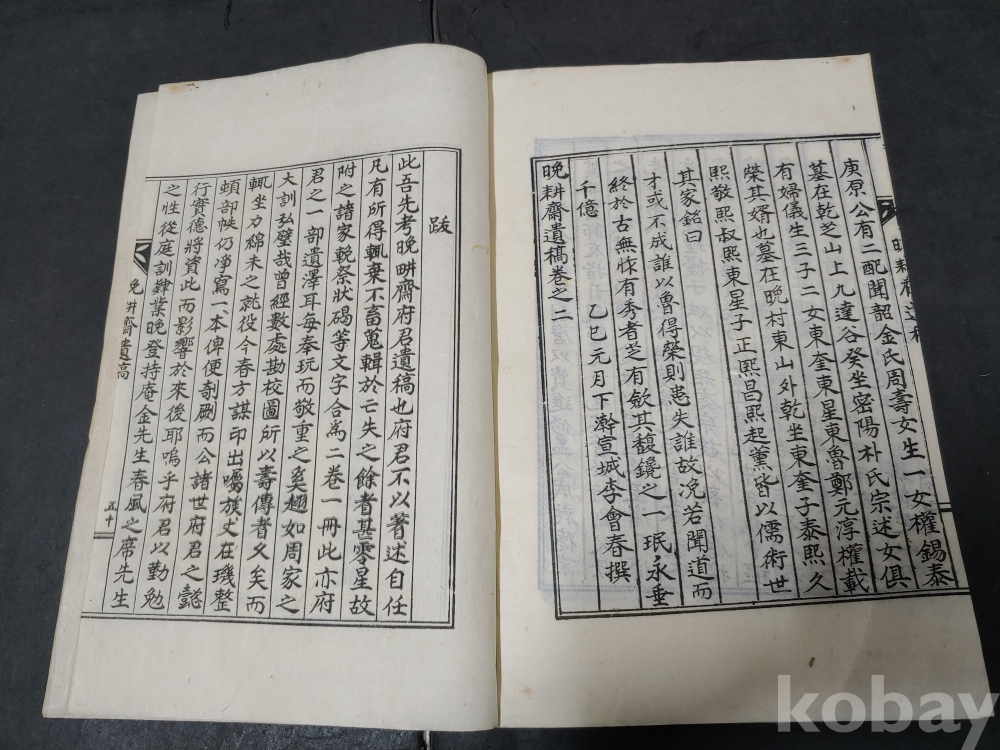 庚原公有二配聞韶金氏周壽女生一女權錫泰
墓在乾芝山上九達谷癸坐密陽朴氏宗述女俱
有婦儀生三子二女東奎東星東魯鄭元淳權載
榮其婿也墓在晩村東山外乾坐東奎子泰熙久
熙敬熙叔熙東星子正熙昌熙起薰皆以儒術世
其家銘曰
才或不成誰以魯得榮則患失誰故况若聞道而
終於古無怍有秀者芝有欽其馥鑱之一珉永垂
千億
乙巳元月下澣宣城李會春撰
晩耕齋遺稿卷之二
跋
此吾先考晩畊齋府君遺稿也府君不以著述自任
凡有所得輒棄不畜蒐輯於亡失之餘者甚零星故
附之諸家輓祭狀碣等文字合爲二卷一冊此亦府
君之一部遺澤耳每奉玩而敬重之奚翅如周家之
大訓弘璧哉曾經數處勘校圖所以壽傳者久矣而
輒坐力綿未之就役今春方謀印出囑族丈在璣整
頓部帙仍净寫一本俾便剞劂而公諸世府君之懿
行實德將資此而影響於來後耶嗚乎府君以勤勉
之性從庭訓肄業晩登持庵金先生春風之席先生
晩畊齋遺稿
五十
kobay